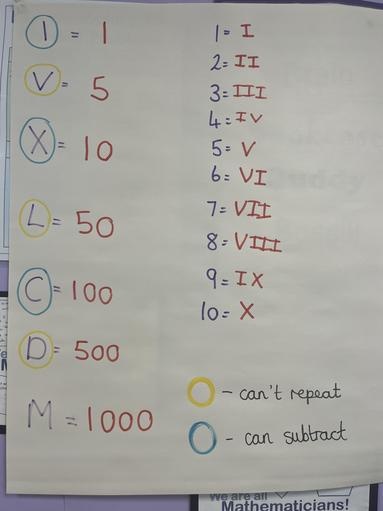 I = 1
V = 5
X = 10
L = 50
C = 100
D = 500
M = 1000
1 = I
2 = II
3 = III
4 = IV
5 = V
6 = VI
7 = VII
8 = VIII
9 = IX
10 = X
- can't repeat
- can subtract
We are all
Mathematicians!